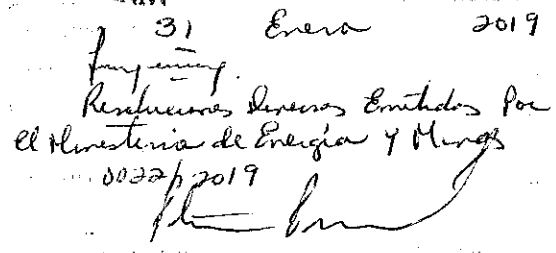 31 Enero 2019
Resoluciones Diversas Emitidas Por
el Ministerio de Energía y Minas
0022/2019